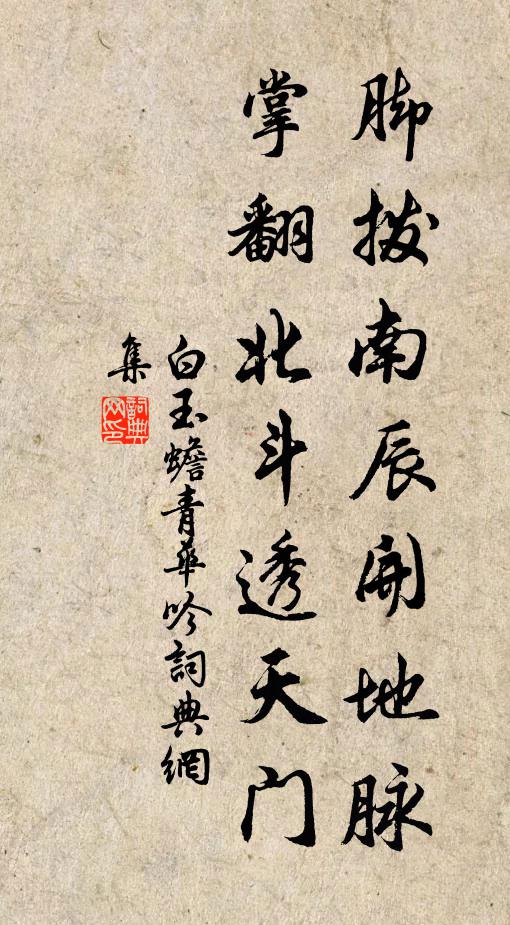 脚拨南辰開地脉
掌翻北斗透天门
白玉蟾青華吟詞典網
集
詞典
网印